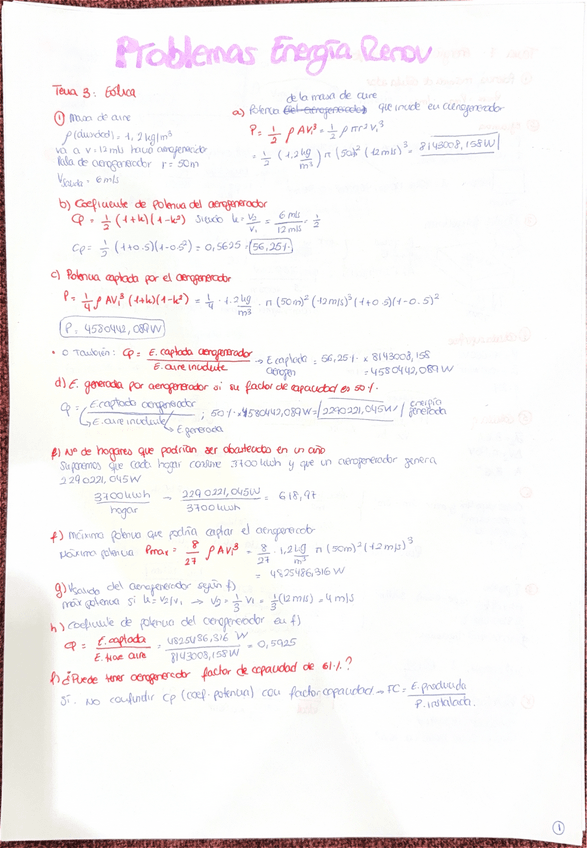 Problemas Energía Renov
Tema 3: Eólica
① Masa de aire
ρ (densidad) = 1,2 kg/m³
va a v = 12 m/s hacia aerogenerador
Pala de aerogenerador r = 50m
Vsalida = 6 m/s
de la masa de aire
a) Potencia que incide en aerogenerador
P = 1/2 ρ A V₁³ = 1/2 ρ π r² V₁³
= 1/2 (1,2 kg/m³) π (50)² (12 m/s)³ = 8143008,158 W
b) Coeficiente de potencia del aerogenerador
Cp = 1/2 (1+k)(1-k²) siendo k = V₂/V₁ = 6 m/s / 12 m/s = 1/2
Cp = 1/2 (1+0.5)(1-0.5²) = 0,5625 = 56,25%
c) Potencia captada por el aerogenerador
P = 1/4 ρ A V₁³ (1+k)(1-k²) = 1/4 · 1.2 kg/m³ · π (50m)² (12 m/s)³ (1+0.5)(1-0.5)²
P = 4580442,089 W
• O También: Cp = E. captada aerogenerador / E. aire incidente → E captada aerogen = 56,25% × 8143008,158
= 4580442,089 W
d) E. generada por aerogenerador si su factor de capacidad es 50%
Cp = E captado aerogenerador / E. aire incidente ; 50% × 4580442,089 W = 2290221,045 W / energía generada
→ E generada
f) Nº de hogares que podrían ser abastecidos en un año
Suponemos que cada hogar consume 3700 kwh y que un aerogenerador genera
2290221,045 W
3700 kwh / hogar → 2290221,045 W / 3700 kwh = 618,97
f) Máxima potencia que podría captar el aerogenerador
Máxima potencia Pmax = 8/27 ρ A V₁³ = 8/27 · 1.2 kg/m³ π (50m)² (12 m/s)³
= 4825486,316 W
g) Vsalida del aerogenerador según f)
máx potencia si k = V₂/V₁ → V₂ = 1/3 V₁ = 1/3 (12 m/s) = 4 m/s
h) Coeficiente de potencia del aerogenerador en f)
Cp = E. captada / E. trae aire = 4825486,316 W / 8143008,158 W = 0,5925
f) ¿Puede tener aerogenerador factor de capacidad de 61%?
Sí. No confundir Cp (coef. potencia) con factor capacidad → FC = E. producida / P. instalada.
1